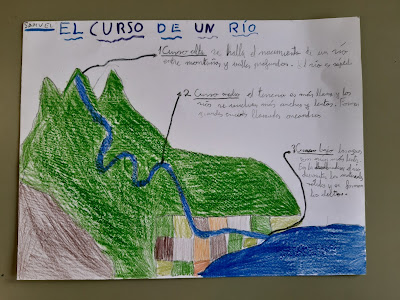 SAMUEL
EL CURSO DE UN RÍO
1 Curso alto se halla el nacimiento de un río
entre montañas y valles profundos. El río es rápido
2 Curso medio el terreno es más llano y los
ríos se vuelven más anchos y lentos. Forma
curvas llamadas meandros
3 Curso bajo las aguas
son aún más lentas
En la el río
durante los
y se forman
los deltas.